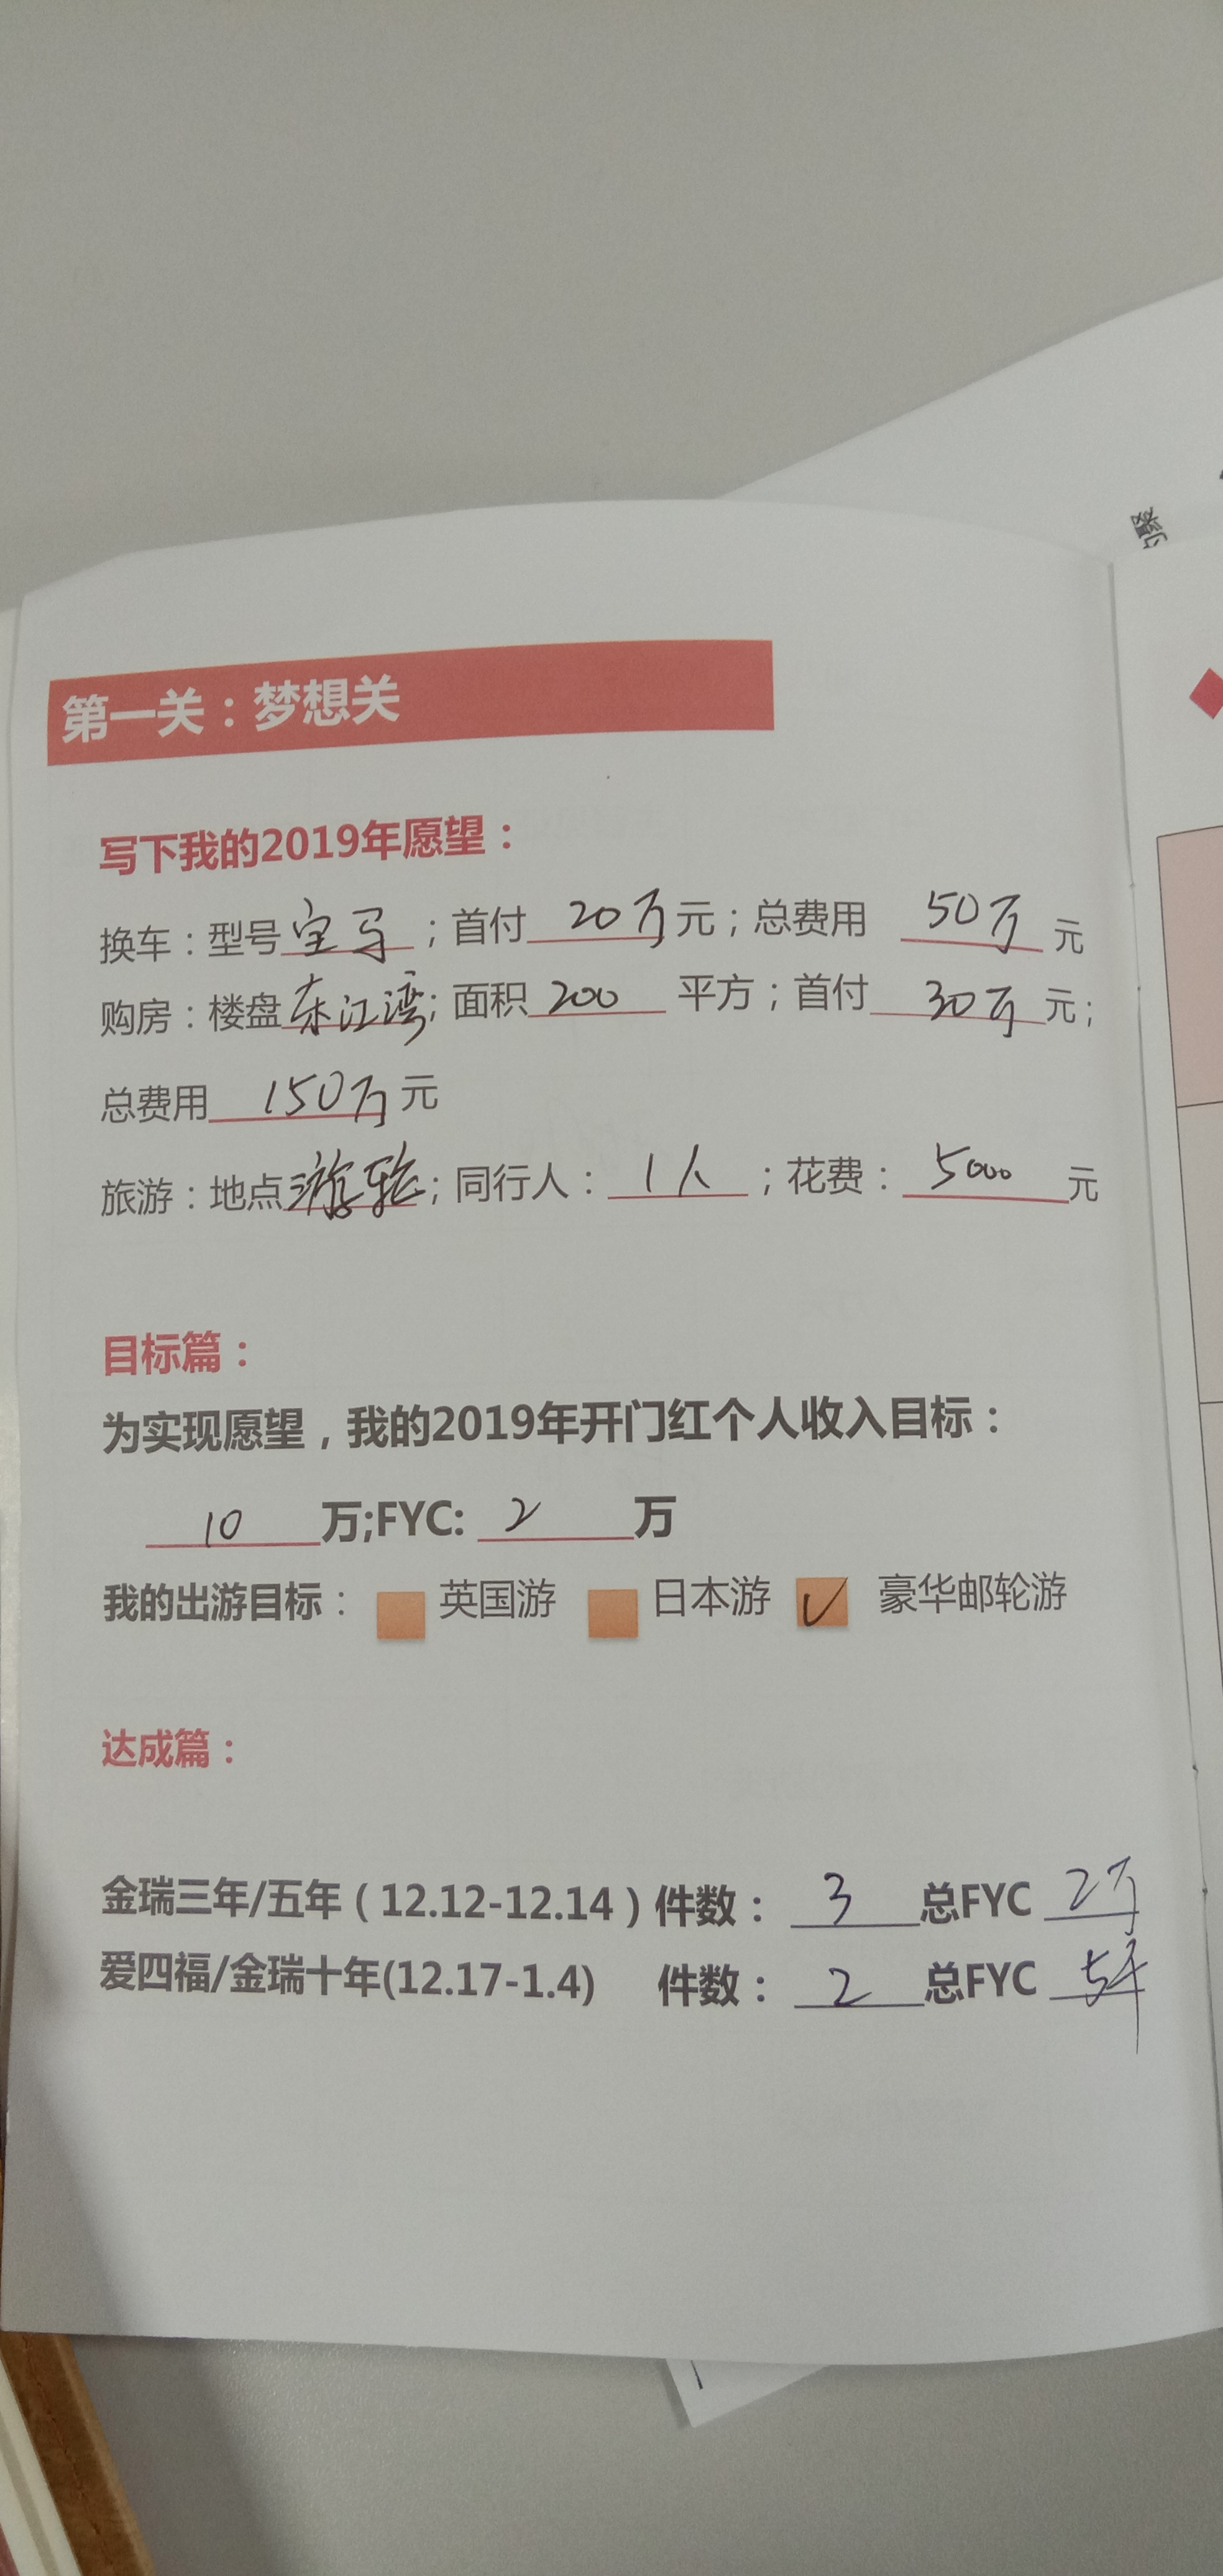 骤
第一关：梦想关
写下我的2019年愿望：
换车：型号宝马；首付20万元；总费用 50万元
购房：楼盘东江湾；面积200平方；首付30万元；
总费用150万元
旅游：地点游轮；同行人：1人；花费：5000元
目标篇：
为实现愿望，我的2019年开门红个人收入目标：
10万;FYC: 2万
我的出游目标： 英国游 日本游 ✓ 豪华邮轮游
达成篇：
金瑞三年/五年（12.12-12.14）件数： 3 总FYC 2万
爱四福/金瑞十年(12.17-1.4) 件数： 2 总FYC 5千